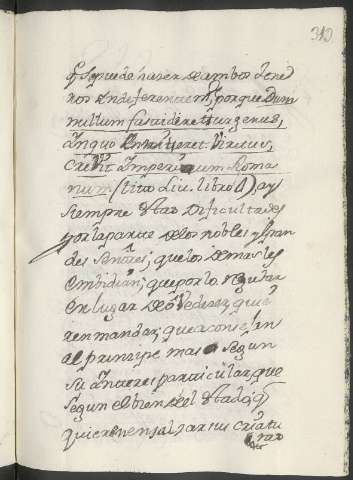 310
q̃ se puede hacer de ambos gene
ros indiferenciem.te, porque Dum
nullum fastidiretur genus,
in quo eniteret Virtus,
crevit Imperium Roma
num (Tito Liv. libro 4), ay
siempre estas dificultades
por la parte de los nobles y gran
des Señores; que los demas les
embidian; que por lo regular
en lugar de obedecer, quie
ren mandar; que aconsejan
al principe mas segun
su interes particular, que
segun el bien del estado; q̃
quieren ensalzar su criatu
ras